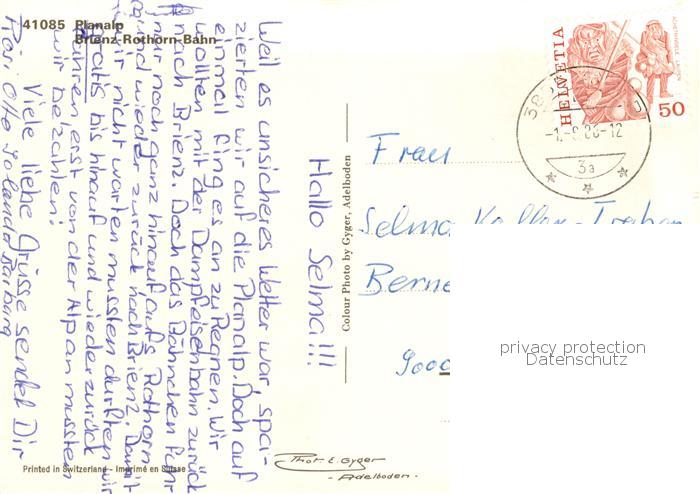 41085 Planalp
Brienz-Rothorn-Bahn
Hallo Selma!!!
Weil es unsicheres Wetter war, spa-
zierten wir auf die Planalp. Doch auf
einmal fing es an zu Regnen. Wir
wollten mit der Dampfeisenbahn zurück
nach Brienz. Doch das Bähnchen fuhr
nur noch ganz hinauf aufs Rothorn
und wieder zurück nach Brienz. Damit
wir nicht warten mussten durften wir
gratis bis hinauf und wieder zurück
fahren erst von der Alp an mussten
wir bezahlen!
Viele liebe Grüsse sendet Dir
Rösi Otto Jolanda Barbara
Colour Photo by Gyger, Adelboden
HELVETIA
50
3a
Frau
Selma
Berne
9000
privacy protection
Datenschutz
Phot. E. Gyger
- Adelboden -
Printed in Switzerland - Imprimé en Suisse